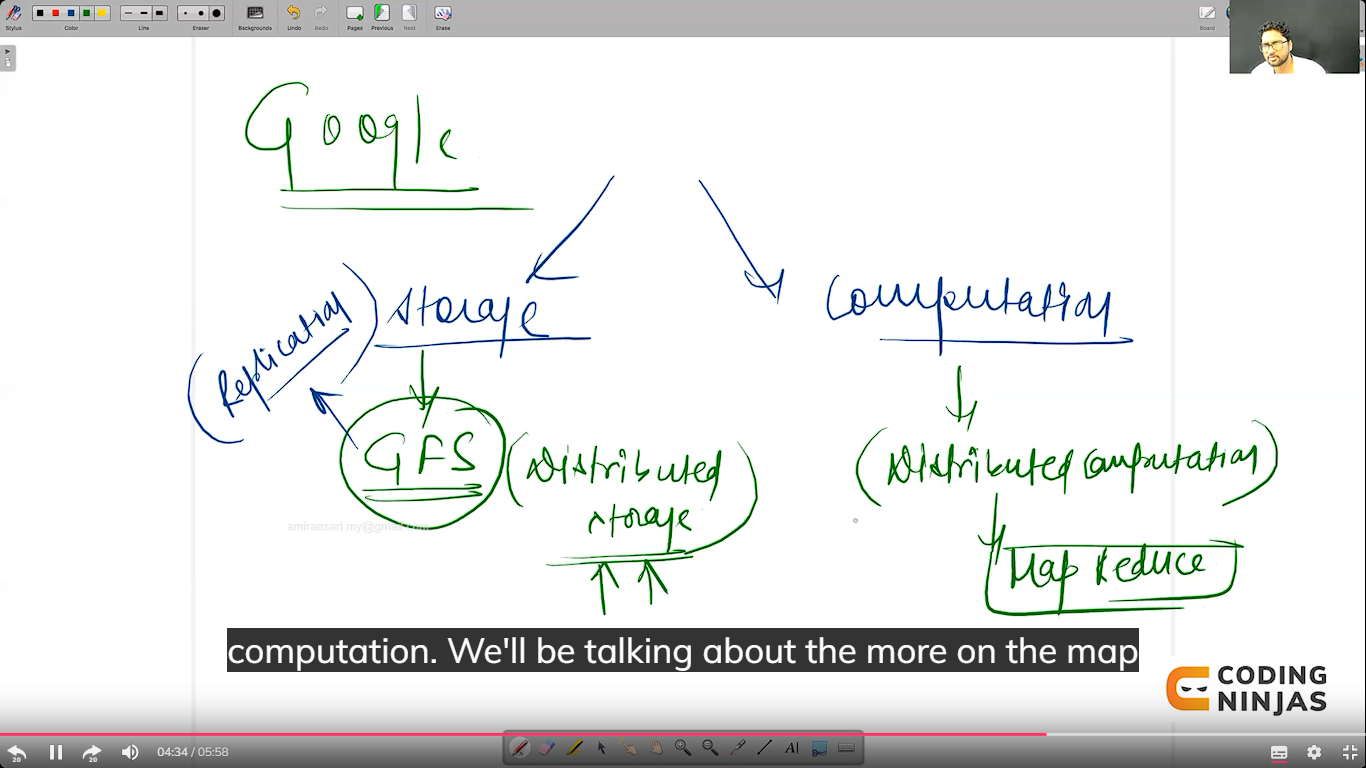 Stylus
Color
Line
Eraser
Backgrounds
Undo
Redo
Pages
Previous
Next
Erase
Board
Google
Storage
Computation
(Replication)
GFS
(Distributed
Storage)
(Distributed Computation)
Map Reduce
amiransari.my@gmail.com
computation. We'll be talking about the more on the map
CODING
NINJAS
20
20
04:34 / 05:58
AI